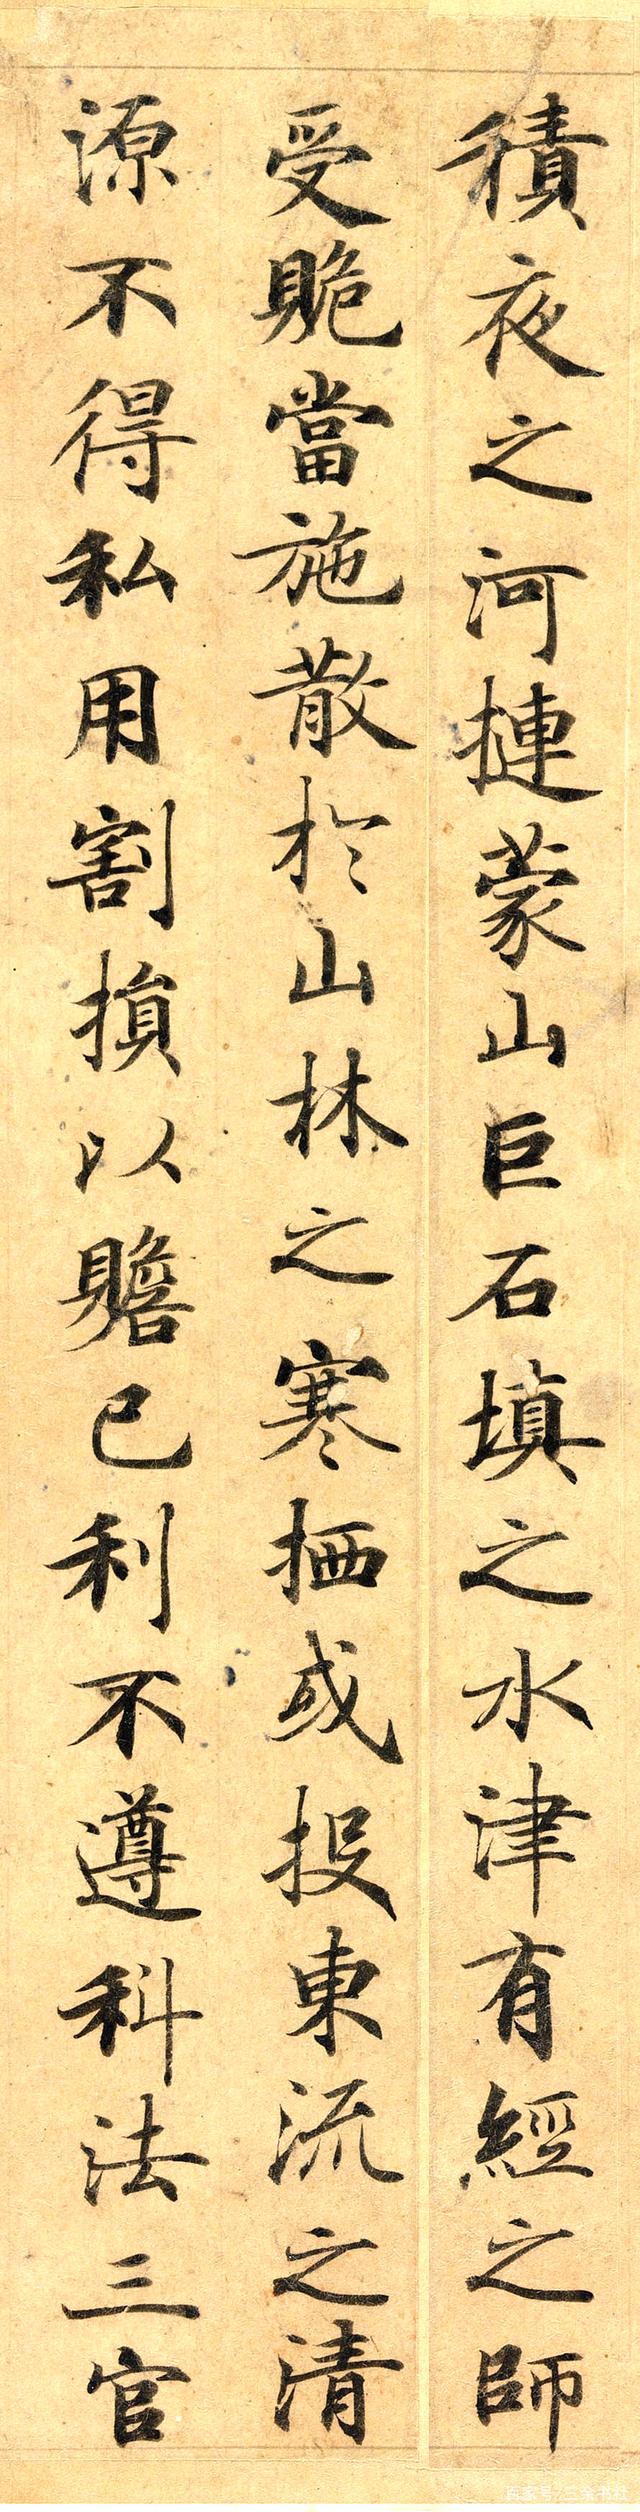 積夜之河摙蒙山巨石填之水津有經之師
受賄當施散於山林之寒栖或投東流之清
源不得私用割損以贍己利不遵科法三官
百家号/三余书社